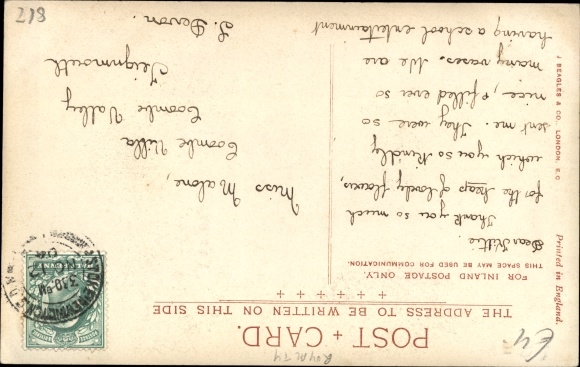 ROYALTY
POST + CARD.
THE ADDRESS TO BE WRITTEN ON THIS SIDE
FOR INLAND POSTAGE ONLY.
THIS SPACE MAY BE USED FOR COMMUNICATION.
Dear Kittie
Thank you so much
for the heap of lovely flowers,
which you so kindly
sent me. They were so
nice, & filled ever so
many vases. We are
having a school entertainment
Miss Malone,
Coombe Villa
Coombe Valley
Teignmouth
S. Devon.
HALFPENNY
3.30 PM
Printed in England.
J. BEAGLES & CO. LONDON. E.C.
£4
817